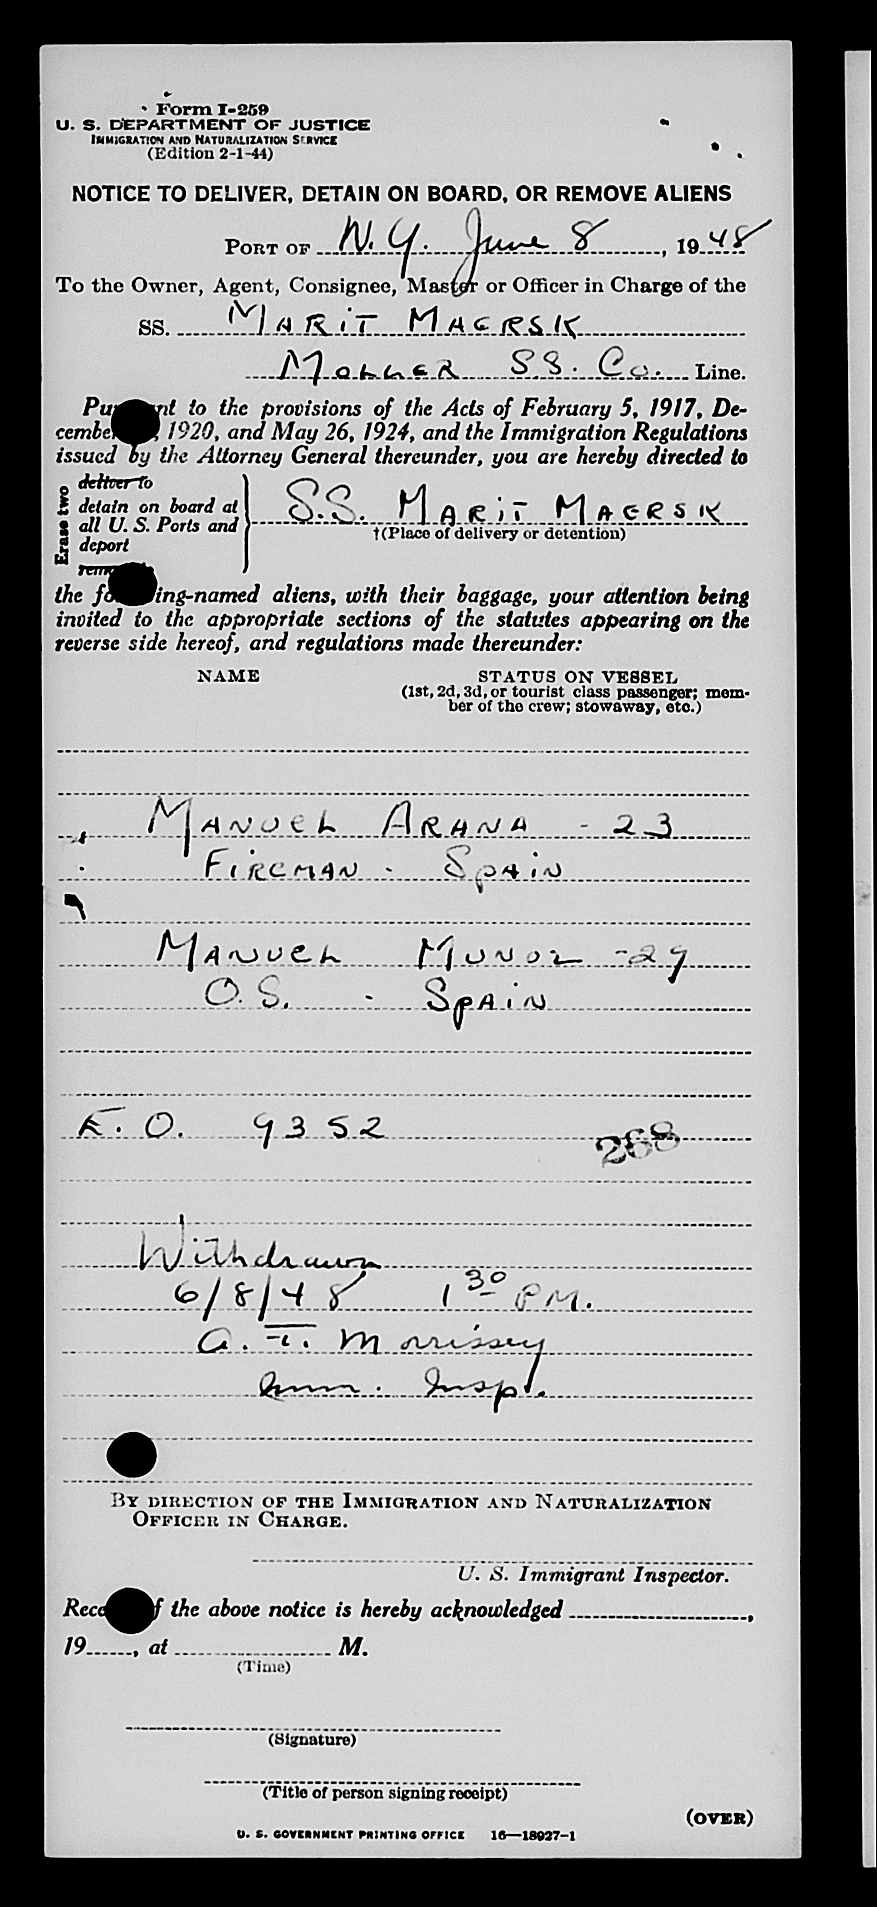 Form I-259
U. S. DEPARTMENT OF JUSTICE
IMMIGRATION AND NATURALIZATION SERVICE
(Edition 2-1-44)
NOTICE TO DELIVER, DETAIN ON BOARD, OR REMOVE ALIENS
PORT OF N.Y. June 8, 1948
To the Owner, Agent, Consignee, Master or Officer in Charge of the
SS. MARIT MAERSK
MOLLER SS. Co. Line.
Pu nt to the provisions of the Acts of February 5, 1917, De-
cembe , 1920, and May 26, 1924, and the Immigration Regulations
issued by the Attorney General thereunder, you are hereby directed to
Erase two
deliver to
detain on board at
all U. S. Ports and
deport
S.S. MARIT MAERSK
†(Place of delivery or detention)
rem
the fo ing-named aliens, with their baggage, your attention being
invited to the appropriate sections of the statutes appearing on the
reverse side hereof, and regulations made thereunder:
NAME STATUS ON VESSEL
(1st, 2d, 3d, or tourist class passenger; mem-
ber of the crew; stowaway, etc.)
MANUEL ARANA - 23
FIREMAN - SPAIN
MANUEL MUNOZ - 29
O.S. - SPAIN
E.O. 9352
268
Withdrawn
6/8/48 1 30 PM.
A. T. Morrissey
Imm. Insp.
BY DIRECTION OF THE IMMIGRATION AND NATURALIZATION
OFFICER IN CHARGE.
U. S. Immigrant Inspector.
Rece f the above notice is hereby acknowledged ,
19 , at M.
(Time)
(Signature)
(Title of person signing receipt)
(OVER)
U. S. GOVERNMENT PRINTING OFFICE 16—18927-1